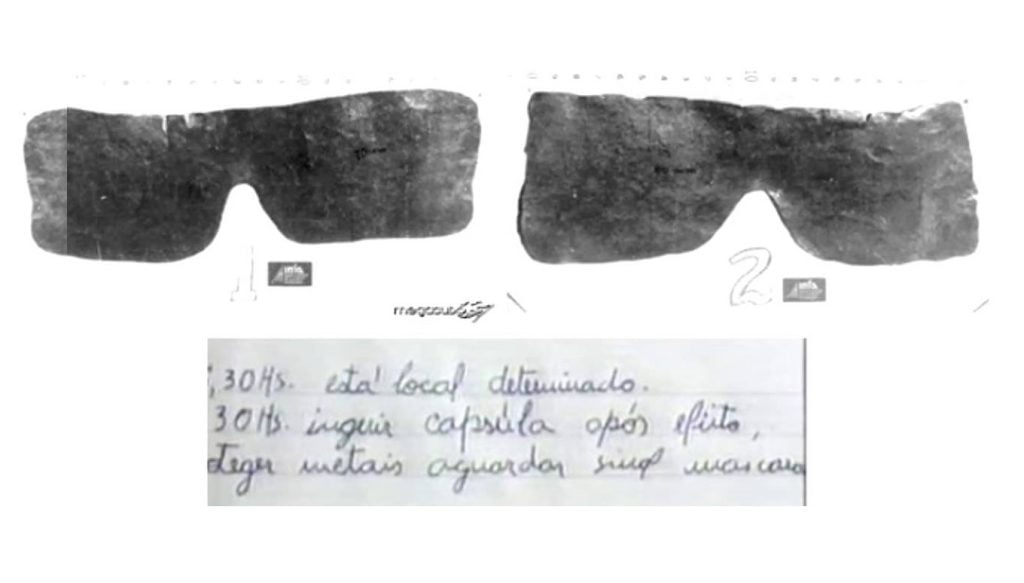 1
2
,30 Hs. está local determinado.
30 Hs. inguir capsúla após efeito,
teger metais aguardar sinal mascara